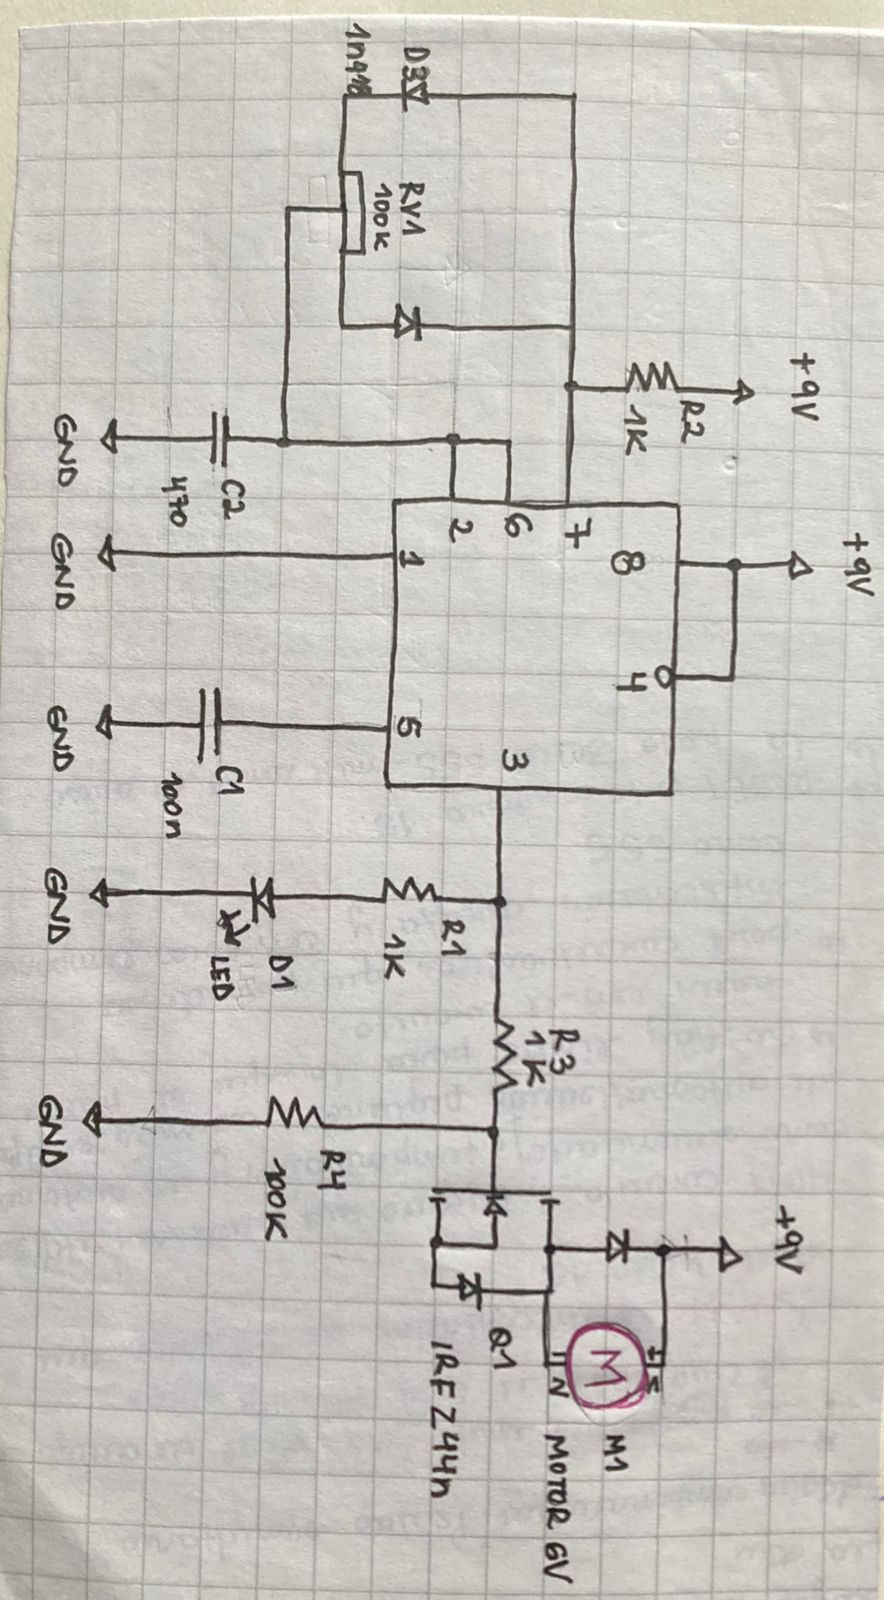 +9V
+9V
+9V
R2
1K
8
4
7
6
2
3
1
5
D3
1n918
RV1
100K
R3
1K
M
M1
MOTOR 6V
N
Q1
IRFZ44n
R1
1K
R4
100K
D1
LED
C2
470
C1
100n
GND
GND
GND
GND
GND